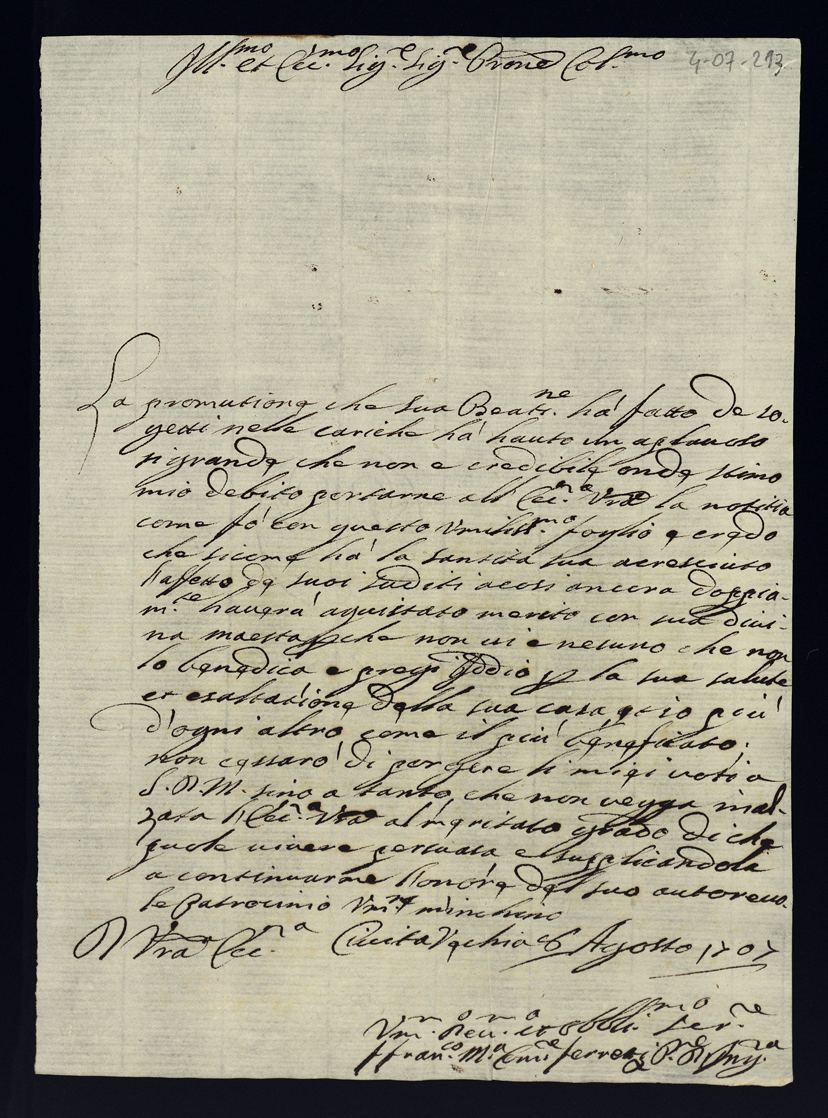 Ill.mo et Ecc.mo Sig.e Sig.e Prone Col.mo
4-07-213
La promutione che sua Beat.ne há fatto de so-
getti nelle cariche há hauto un aplauso
si grande che non e credibile onde stimo
mio debito portarne all Ecc.za Vra la notitia
come fó con questo Vmiliss.mo foglio e credo
che sicome há la santita sua acresciuto
l'affetto de suoi suditi acosi ancora doppia-
m.te hauerá aquistato merito con sua diui-
na maesta che non ui e nesuno che non
lo benedica e preghi Iddio p la sua salute
et esaltatione della sua casa et io piú
d'ogni altro come il piú beneficato;
non cessaró di porgere li miei voti a
S. D. M. sino a tanto che non vegga inal-
zata l'Ecc.a Vra al meritato grado di che
puole uiuere persuasa e suplicandola
a continuarme l'honore del suo autoreuo-
le Patrocinio Vm.te m'inchino
D Vra Ecc.za Ciuita Vechia 6 Agosto 1707
Vm.mo Deu.mo et Obbli.mo Ser.re
ffran.co M.a ferreri